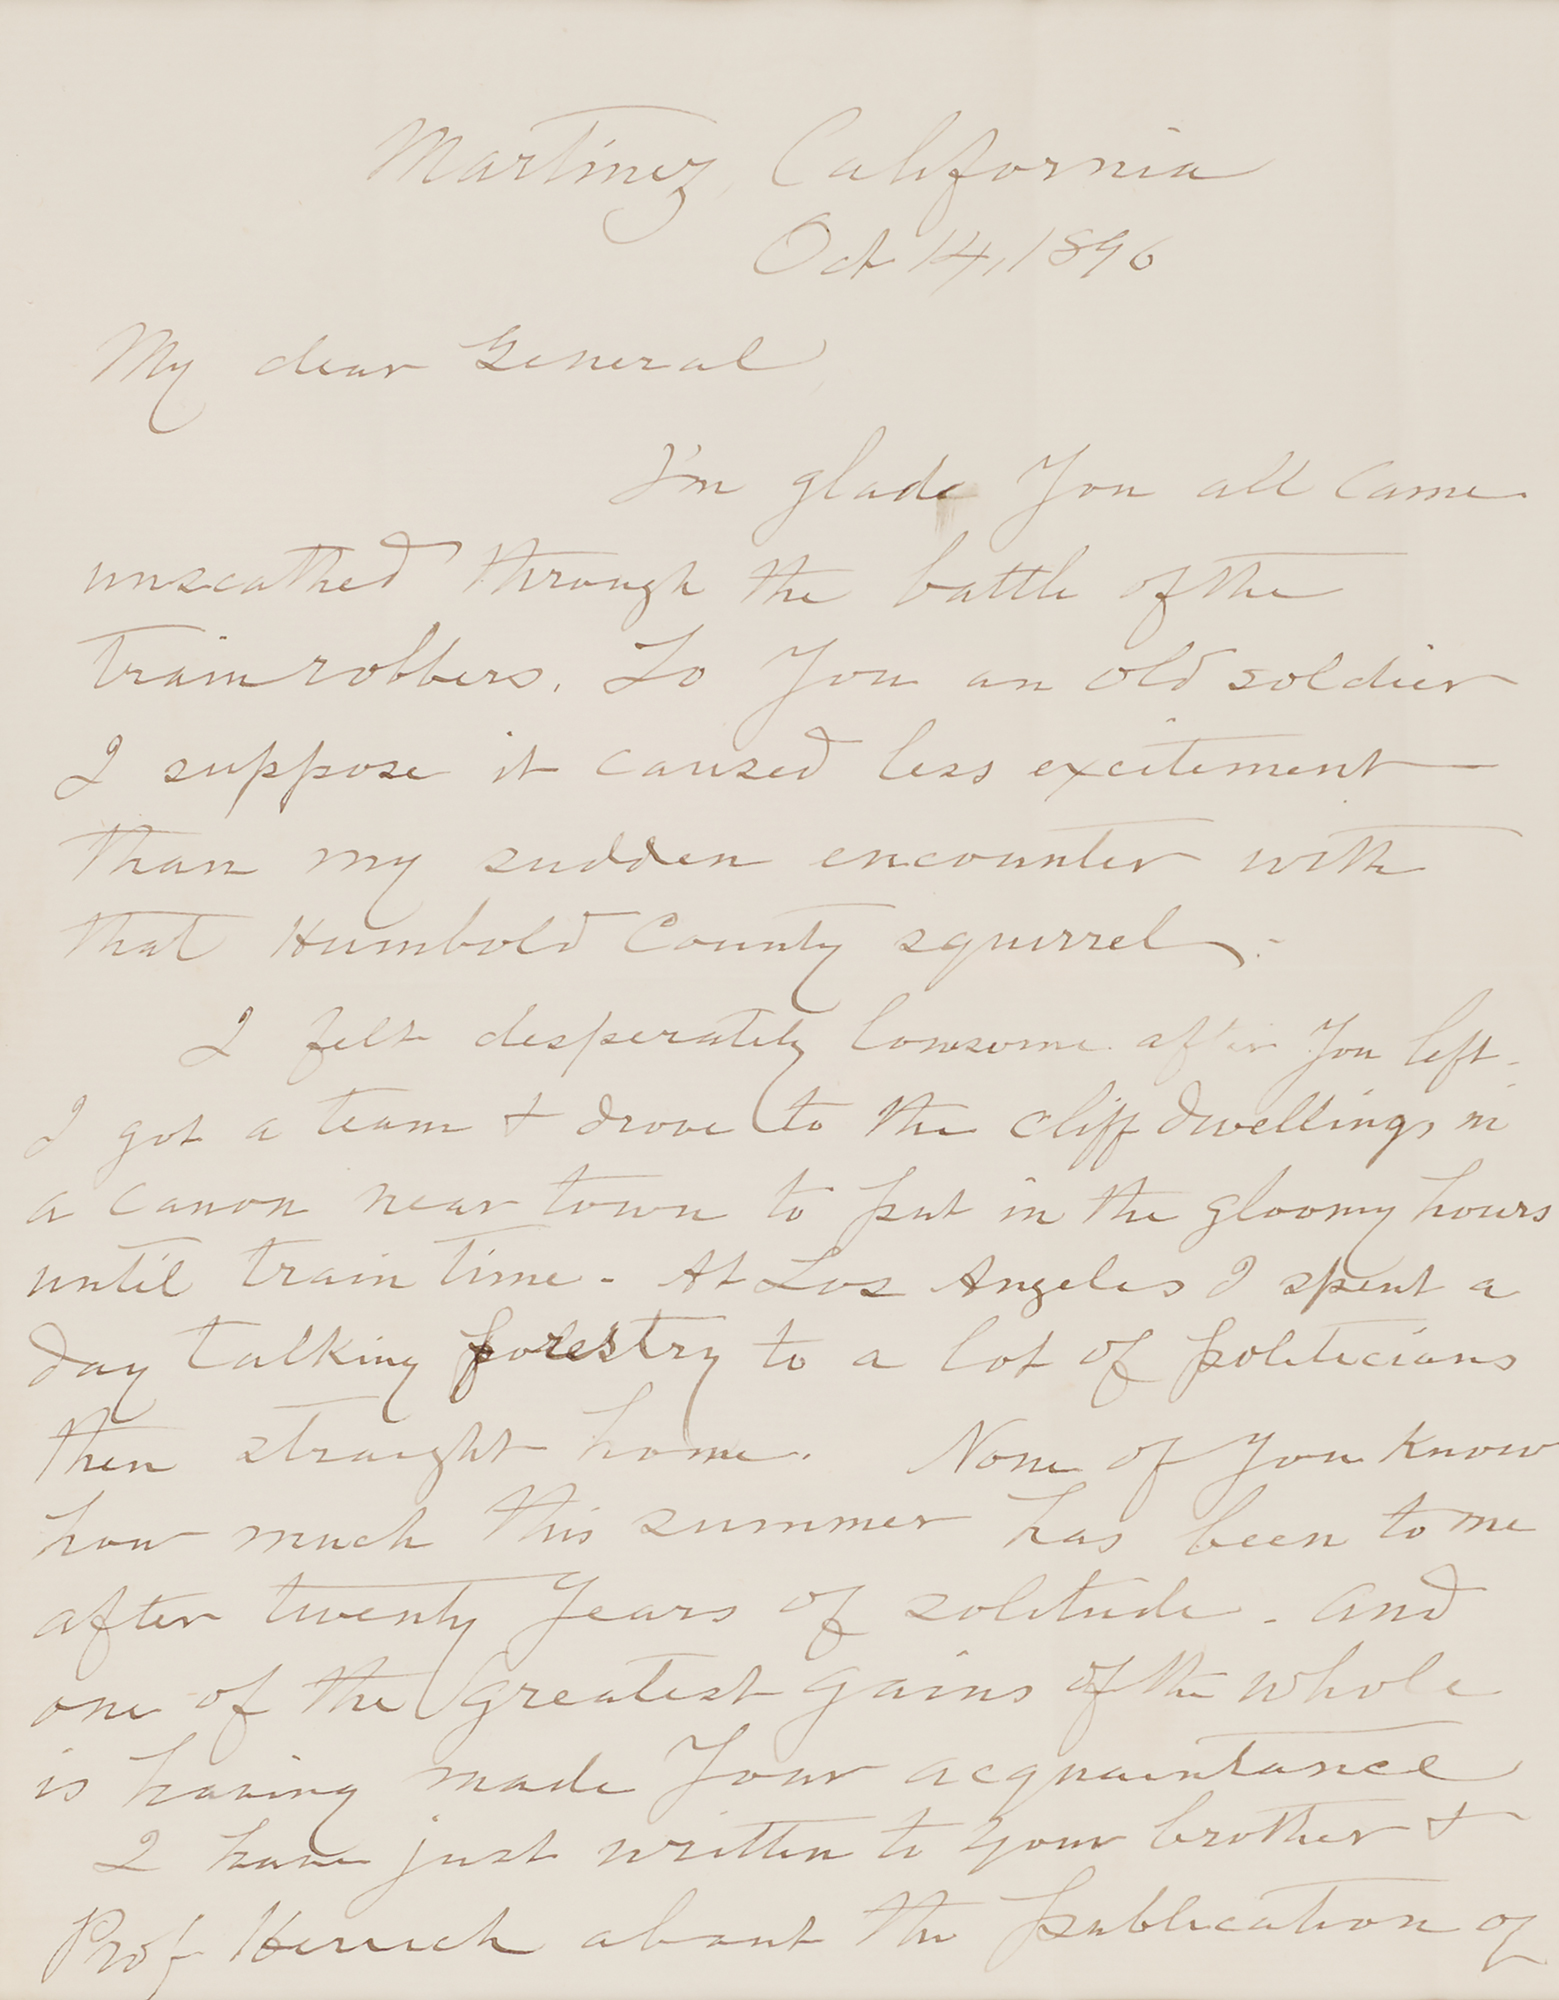 Martinez, California
Oct 14, 1896
My dear General,
I'm glad you all came
unscathed through the battle of the
train robbers. To you an old soldier
I suppose it caused less excitement
than my sudden encounter with
that Humbold County squirrel.
I felt desperately lonesome after you left.
I got a team & drove to the cliff dwellings in
a canon near town to put in the gloomy hours
until train time. At Los Angeles I spent a
day talking forestry to a lot of politicians
then straight home. None of you know
how much this summer has been to me
after twenty years of solitude. And
one of the greatest gains of the whole
is having made your acquaintance
I have just written to your brother &
Prof about the publication of